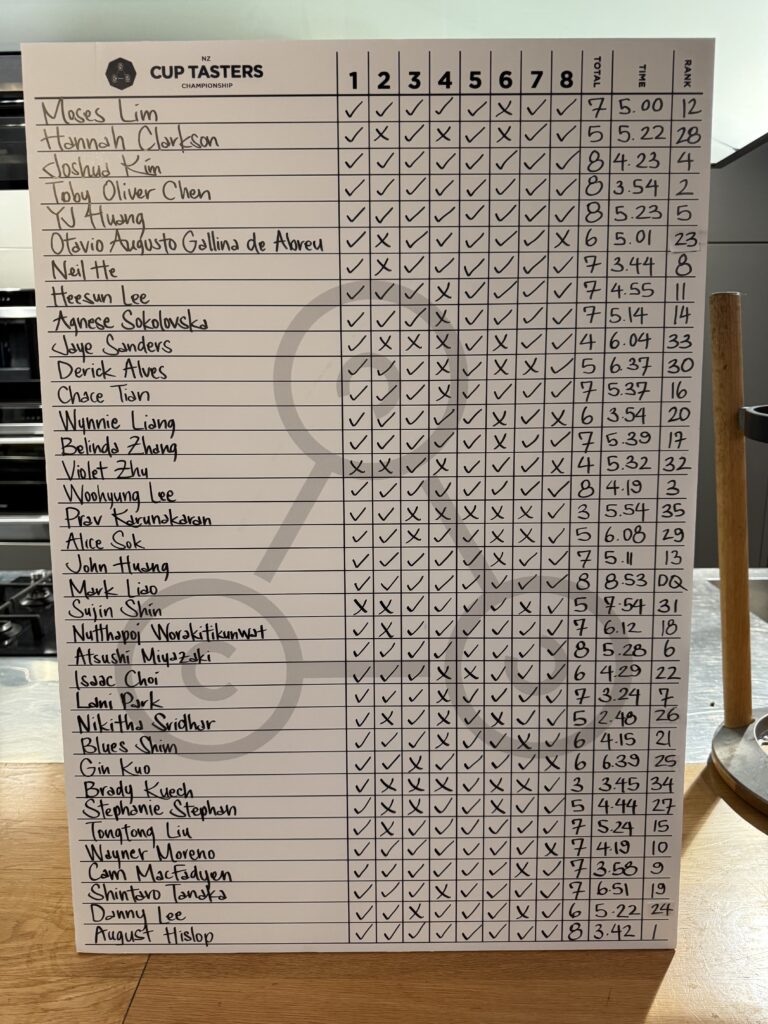 NZ
CUP TASTERS
CHAMPIONSHIP
1 2 3 4 5 6 7 8 TOTAL TIME RANK
Moses Lim ✓ ✓ ✓ ✓ ✓ X ✓ ✓ 7 5.00 12
Hannah Clarkson ✓ X ✓ X ✓ X ✓ ✓ 5 5.22 28
Joshua Kim ✓ ✓ ✓ ✓ ✓ ✓ ✓ ✓ 8 4.23 4
Toby Oliver Chen ✓ ✓ ✓ ✓ ✓ ✓ ✓ ✓ 8 3.54 2
YJ Huang ✓ ✓ ✓ ✓ ✓ ✓ ✓ ✓ 8 5.23 5
Otavio Augusto Gallina de Abreu ✓ X ✓ ✓ ✓ ✓ ✓ X 6 5.01 23
Neil He ✓ X ✓ ✓ ✓ ✓ ✓ ✓ 7 3.44 8
Heesun Lee ✓ ✓ ✓ X ✓ ✓ ✓ ✓ 7 4.55 11
Agnese Sokolovska ✓ ✓ ✓ X ✓ ✓ ✓ ✓ 7 5.14 14
Jaye Sanders ✓ X X X ✓ X ✓ ✓ 4 6.04 33
Derick Alves ✓ ✓ ✓ X ✓ X X ✓ 5 6.37 30
Chace Tian ✓ ✓ ✓ X ✓ ✓ ✓ ✓ 7 5.37 16
Wynnie Liang ✓ ✓ ✓ ✓ ✓ X ✓ X 6 3.54 20
Belinda Zhang ✓ ✓ ✓ ✓ ✓ X ✓ ✓ 7 5.39 17
Violet Zhu X X ✓ X ✓ ✓ ✓ X 4 5.32 32
Woohyung Lee ✓ ✓ ✓ ✓ ✓ ✓ ✓ ✓ 8 4.19 3
Prav Karunakaran ✓ ✓ X X X X X ✓ 3 5.54 35
Alice Sok ✓ ✓ X ✓ X X ✓ ✓ 5 6.08 29
John Huang ✓ ✓ ✓ ✓ ✓ X ✓ ✓ 7 5.11 13
Mark Liao ✓ ✓ ✓ ✓ ✓ ✓ ✓ ✓ 8 8.53 DQ
Sujin Shin X X ✓ ✓ ✓ ✓ X ✓ 5 7.54 31
Nutthapoj Worakitikunwat ✓ X ✓ ✓ ✓ ✓ ✓ ✓ 7 6.12 18
Atsushi Miyazaki ✓ ✓ ✓ ✓ ✓ ✓ ✓ ✓ 8 5.28 6
Isaac Choi ✓ ✓ ✓ X X ✓ ✓ ✓ 6 4.29 22
Lani Park ✓ ✓ ✓ X ✓ ✓ ✓ ✓ 7 3.24 7
Nikitha Sridhar ✓ X ✓ X ✓ X ✓ ✓ 5 2.48 26
Blues Shim ✓ ✓ ✓ X ✓ ✓ X ✓ 6 4.15 21
Gin Kuo ✓ ✓ X ✓ ✓ ✓ ✓ X 6 6.39 25
Brady Kuech ✓ X X X ✓ X X ✓ 3 3.45 34
Stephanie Stephan ✓ X X ✓ ✓ X ✓ ✓ 5 4.44 27
Tongtong Liu ✓ X ✓ ✓ ✓ ✓ ✓ ✓ 7 5.24 15
Wayner Moreno ✓ ✓ ✓ ✓ ✓ ✓ ✓ X 7 4.19 10
Cam MacFadyen ✓ ✓ ✓ ✓ ✓ ✓ X ✓ 7 3.58 9
Shintaro Tanaka ✓ ✓ ✓ X ✓ ✓ ✓ ✓ 7 6.51 19
Danny Lee ✓ ✓ X ✓ ✓ ✓ X ✓ 6 5.22 24
August Hislop ✓ ✓ ✓ ✓ ✓ ✓ ✓ ✓ 8 3.42 1